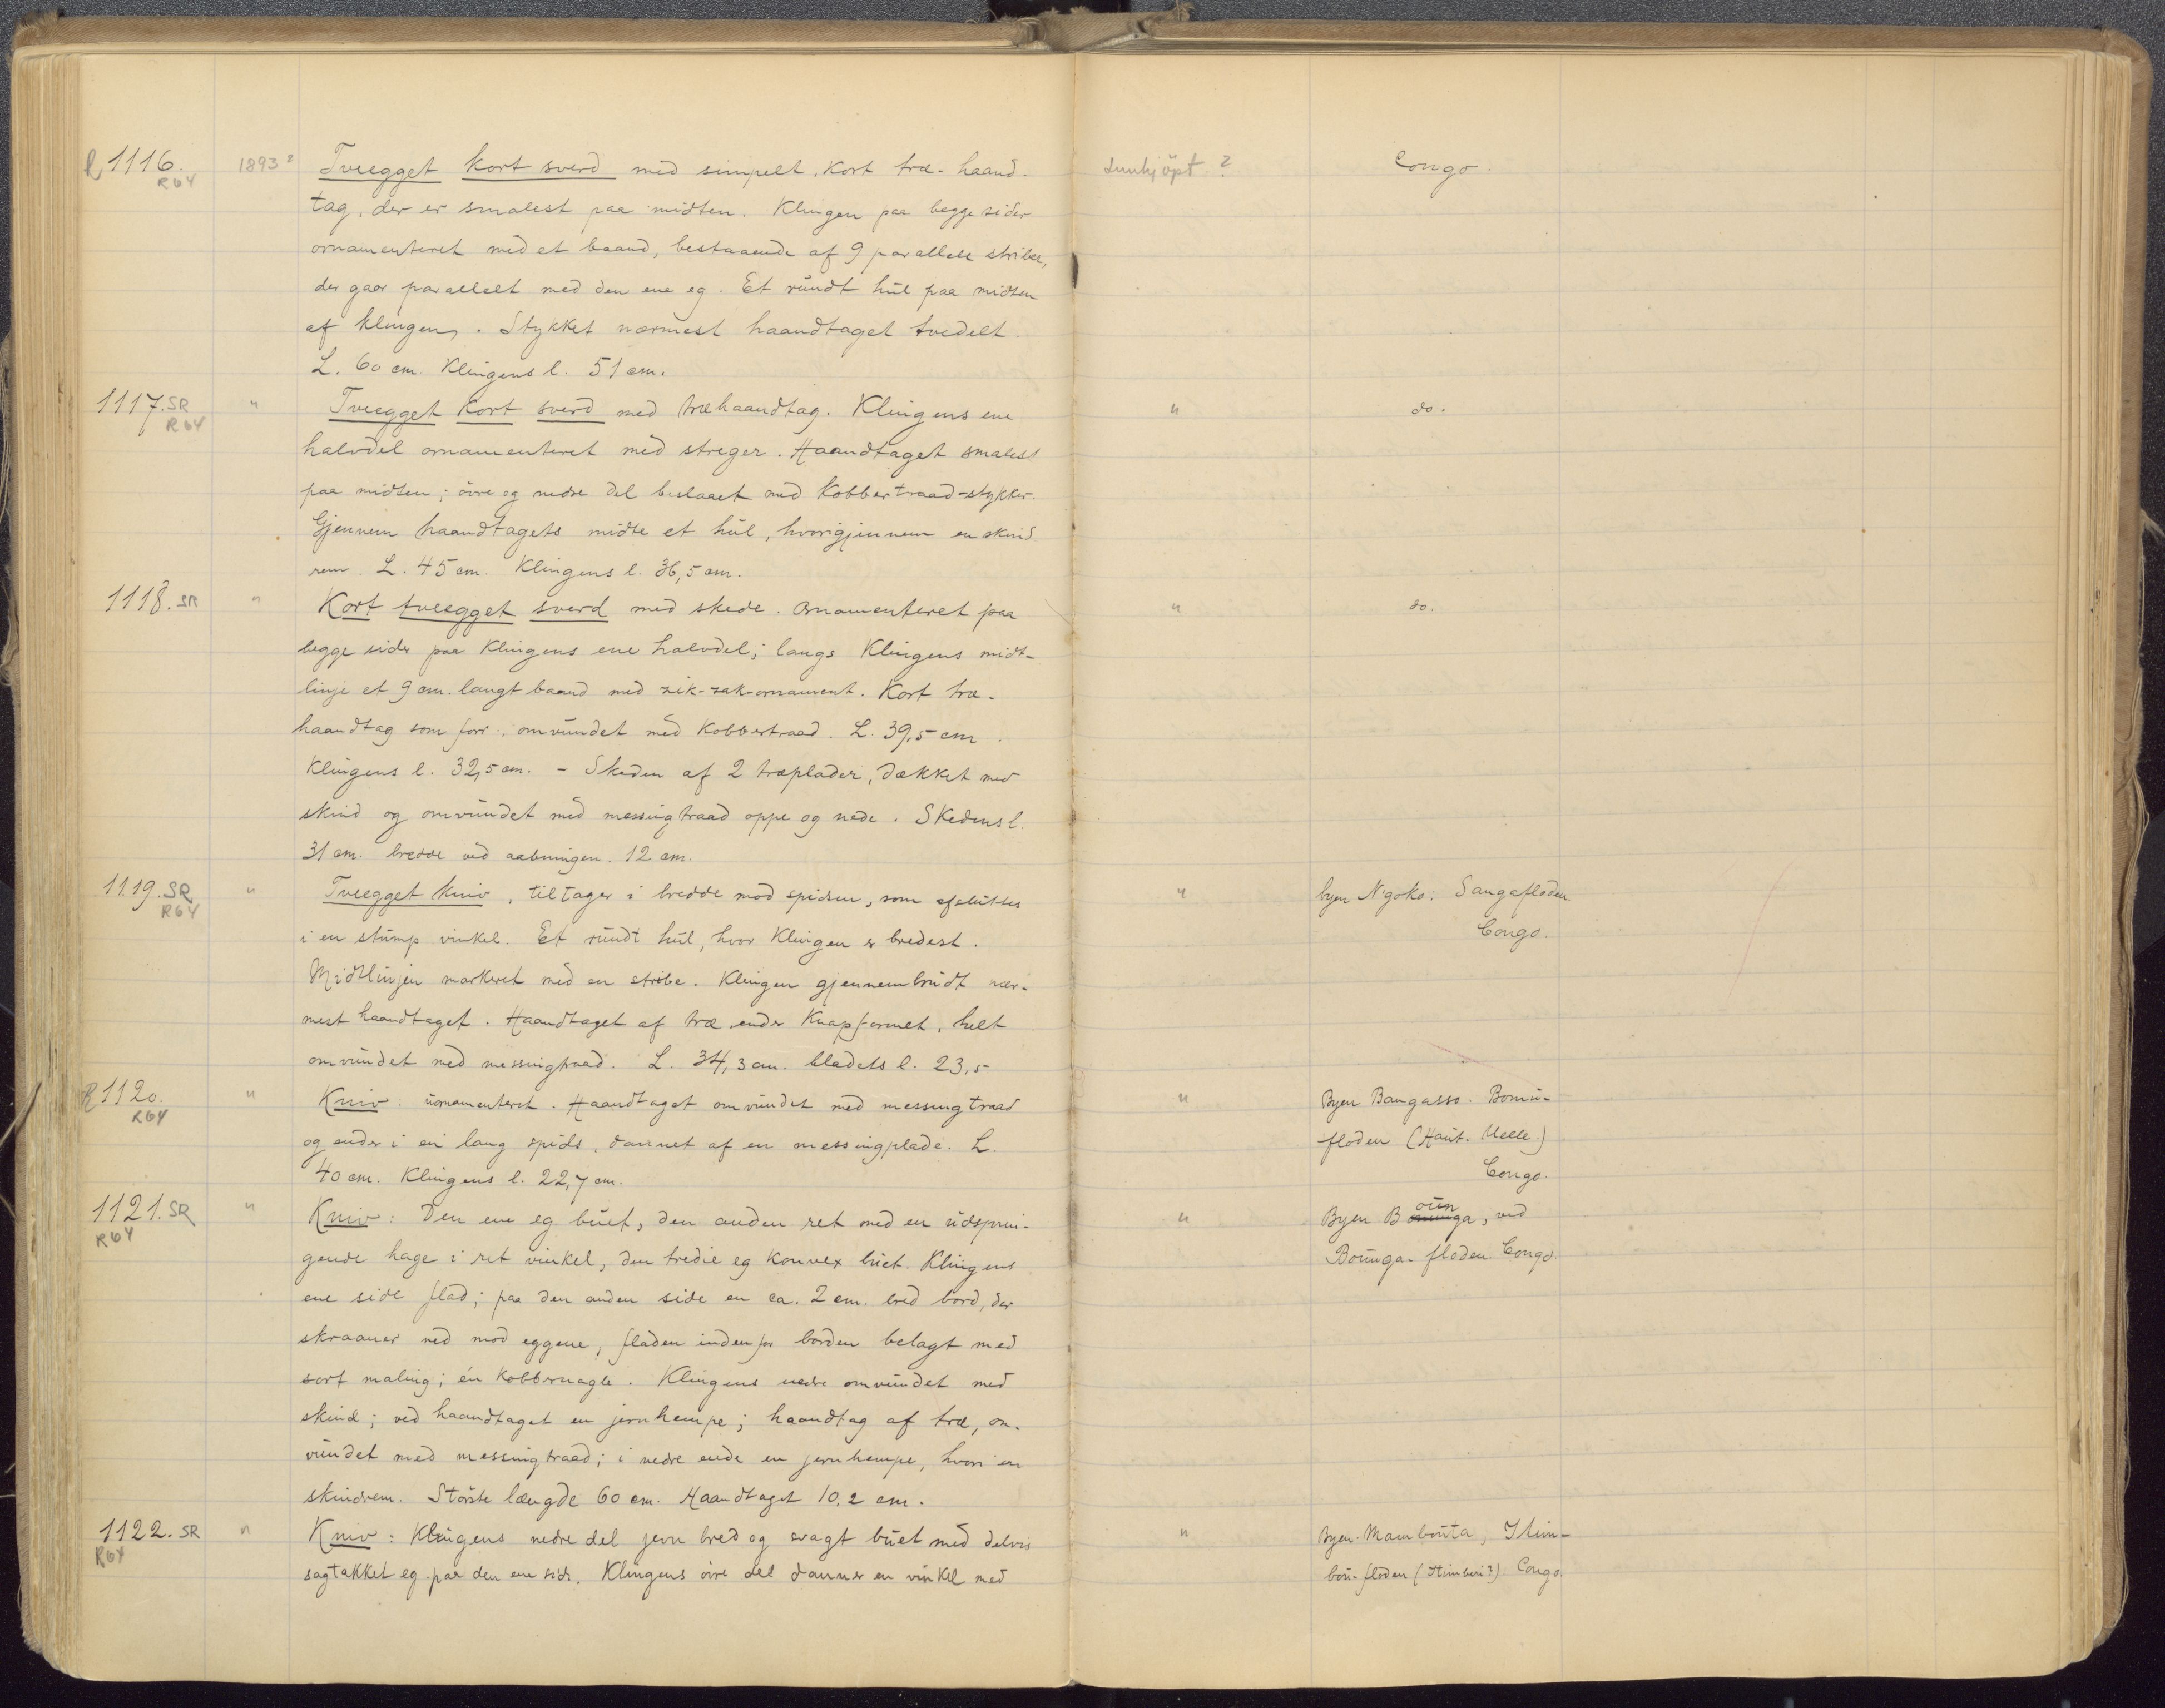 R 1116. R64 1893? Tveegget kort sverd med simpelt, kort træ-haand- Innkjöpt? Congo.
tag, der er smalest paa midten. Klingen paa begge sider
ornamenteret med et baand, bestaaende af 9 parallele striber,
der gaar parallelt med den ene eg. Et rundt hul paa midten
af klingen. Stykket nærmest haandtaget tvedelt.
L. 60 cm. Klingens l. 51 cm.
1117. SR R64 " Tveegget kort sverd med træhaandtag. Klingens ene " do.
halvdel ornamenteret med streger. Haandtaget smalest
paa midten; övre og nedre del beslaaet med kobbertraad-stykker.
Gjennem haandtagets midte et hul, hvorigjennem en skind
rem. L. 45 cm. Klingens l. 36,5 cm.
1118. SR " Kort tveegget sverd med skede. Ornamenteret paa " do.
begge sider paa klingens ene halvdel; langs klingens midt-
linje et 9 cm. langt baand med zik-zak-ornament. Kort træ-
haandtag som forr. omvundet med kobbertraad. L. 39,5 cm.
Klingens l. 32,5 cm. - Skeden af 2 træplader, dækket med
skind og omvundet med messingtraad oppe og nede. Skedens l.
31 cm. bredde ved aabningen. 12 cm.
1119. SR R64 " Tveegget kniv, tiltager i bredde mod spidsen, som afsluttes " byen N'goko: Sangafloden
i en stump vinkel. Et rundt hul, hvor klingen er bredest. Congo.
Midtlinjen markeret med en stribe. Klingen gjennembrudt nær-
mest haandtaget. Haandtaget af træ ender knapformet, helt
omvundet med messingtraad. L. 34,3 cm. bladets l. 23,5
R 1120. R64 " Kniv: uornamenteret. Haandtaget omvundet med messingtraad " Byen Bangasso. Bomu-
og ender i en lang spids, dannet af en messingplade. L. floden (Haut. Uelle)
40 cm. Klingens l. 22,7 cm. Congo.
1121. SR R64 " Kniv: Den ene eg buet, den anden ret med en udsprin- " Byen Bounga, ved
gende hage i ret vinkel, den tredie eg konvex buet. Klingens Bounga-floden. Congo
ene side flad; paa den anden side en ca. 2 cm. bred bord, der
skraaner ned mod eggene, fladen indenfor borden belagt med
sort maling; én kobbernagle. Klingens nedre omvundet med
skind; ved haandtaget en jernhempe; haandtag af træ, om-
vundet med messingtraad; i nedre ende en jernhempe, hvori en
skindrem. Störste længde 60 cm. Haandtaget 10,2 cm.
1122. SR R64 " Kniv: Klingens nedre del jevn bred og svagt buet med delvis " Byen Mambouta, Itim-
sagtakket eg paa den ene side. Klingens övre del danner en vinkel med bou-floden (Itimbiri?) Congo.